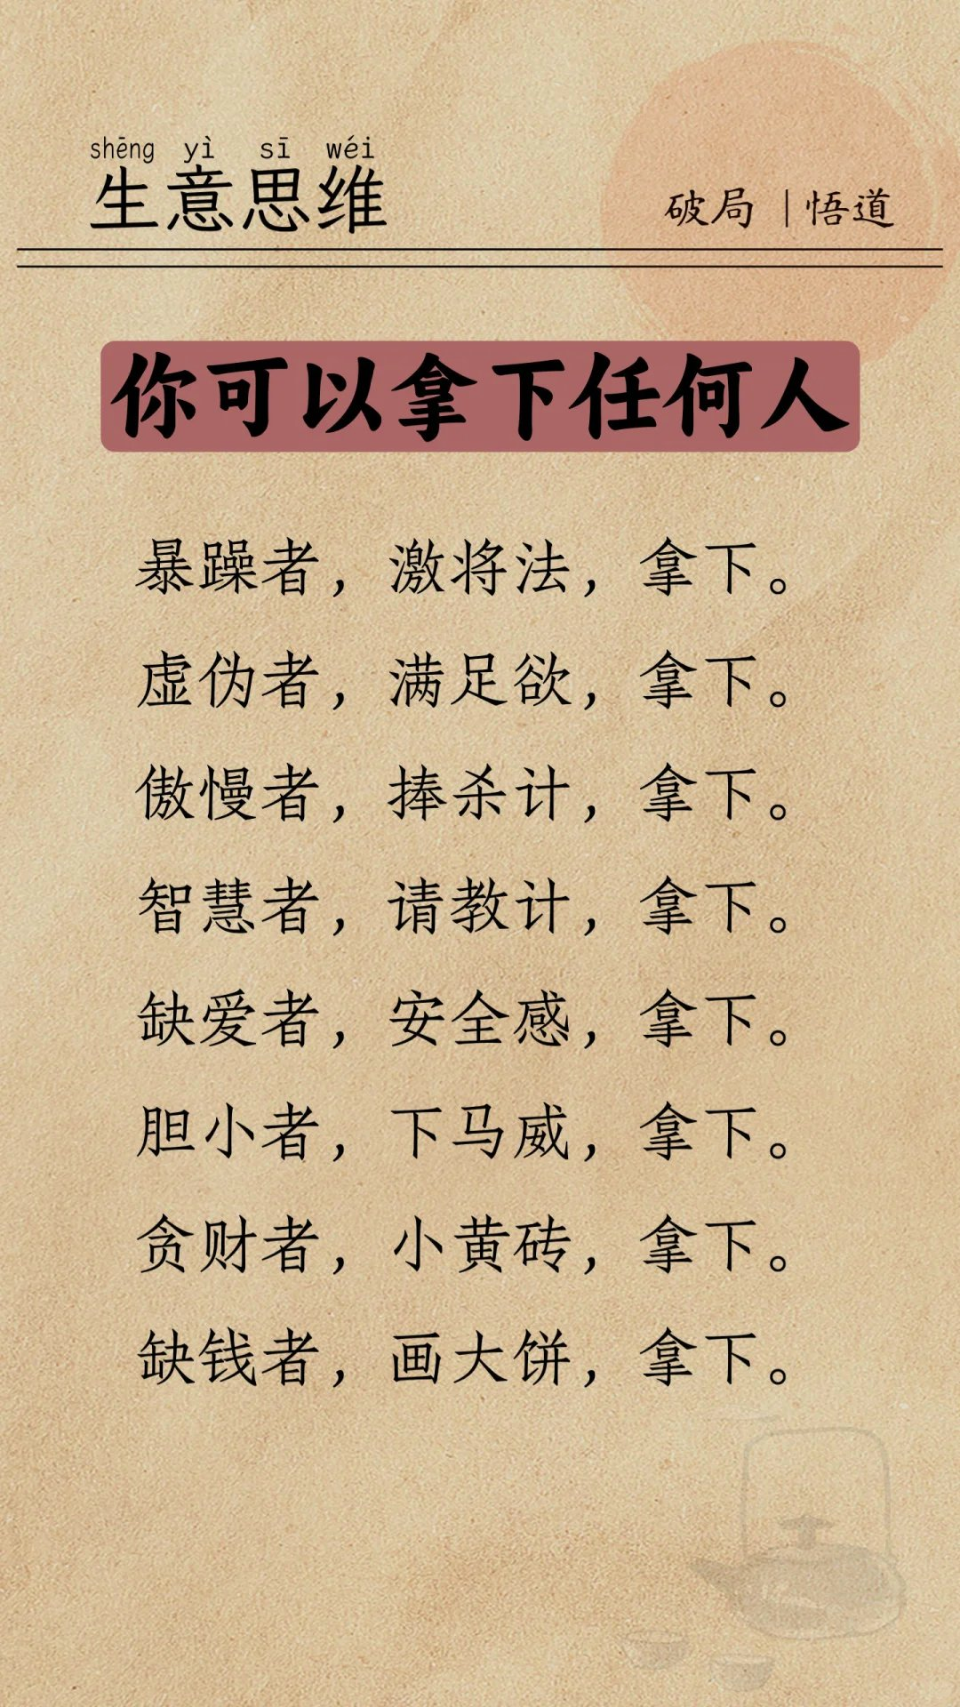 shēng yì sī wéi
生意思维
破局 | 悟道
你可以拿下任何人
暴躁者，激将法，拿下。
虚伪者，满足欲，拿下。
傲慢者，捧杀计，拿下。
智慧者，请教计，拿下。
缺爱者，安全感，拿下。
胆小者，下马威，拿下。
贪财者，小黄砖，拿下。
缺钱者，画大饼，拿下。